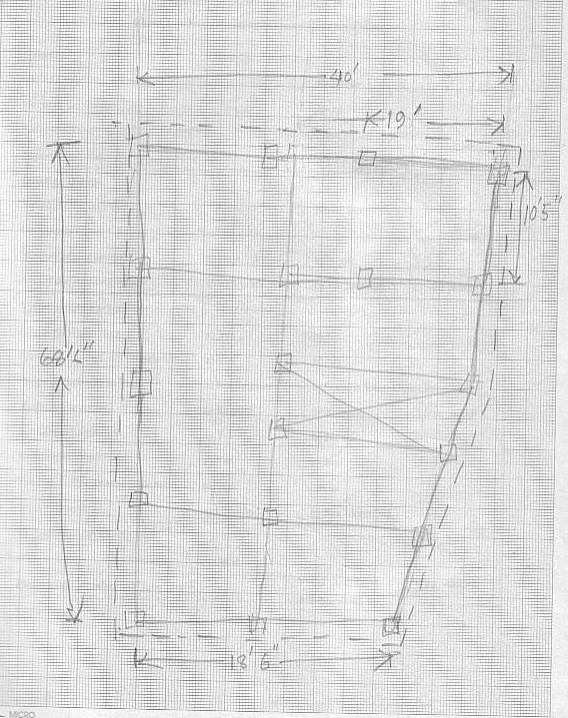 40'
19'
10'5"
18'6"
MICRO